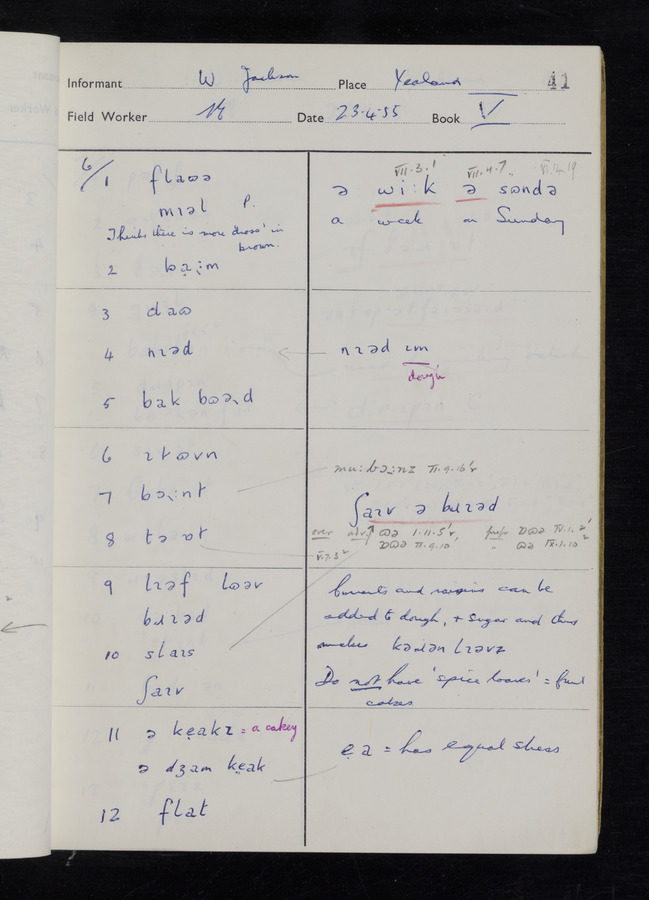 Informant W Jackson Place Yealand 41
Field Worker Date 23-4-55 Book V
6/1 flaʊə
mɪəl P.
Thinks there is more 'dross' in
brown.
2 ba̤ːm
3 daʊ
4 nɪəd
5 bak bʊəɹd
6 ɪtʊvn
7 bəːnt
8 tə ʊt
9 lɪəf lʊəv
bɹɪəd
10 slaɪs
ʃaɪv
11 ə kẹakɪ = a cakey
ə dʒam kẹak
12 flat
VII.3.1 VII.4.7 VI.14.19
ə wiːk ə sʊndə
a week on Sunday
nɪəd ɪm
dough
muːbəːnz II.9.16'r
ʃaɪv ə bɹɪəd
over
V.7.3
currants and raisins can be
added to dough, + sugar and thus
makes kəɹən lɪəvz
Do not have 'spice loaves' = fruit
cakes
ẹa = has equal stress